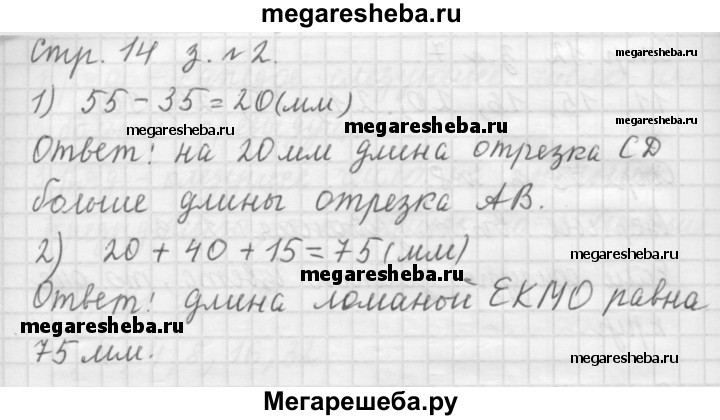 megaresheba.ru
Стр. 14 з. №2.
megaresheba.ru
1) 55 - 35 = 20 (мм)
megaresheba.ru
megaresheba.ru
megaresheba.ru
Ответ: на 20 мм длина отрезка CD
больше длины отрезка AB.
2) 20 + 40 + 15 = 75 (мм)
megaresheba.ru
megaresheba.ru
Ответ: длина ломаной ЕКМО равна
megaresheba.ru
75 мм.
megaresheba.ru
Мегарешеба.ру